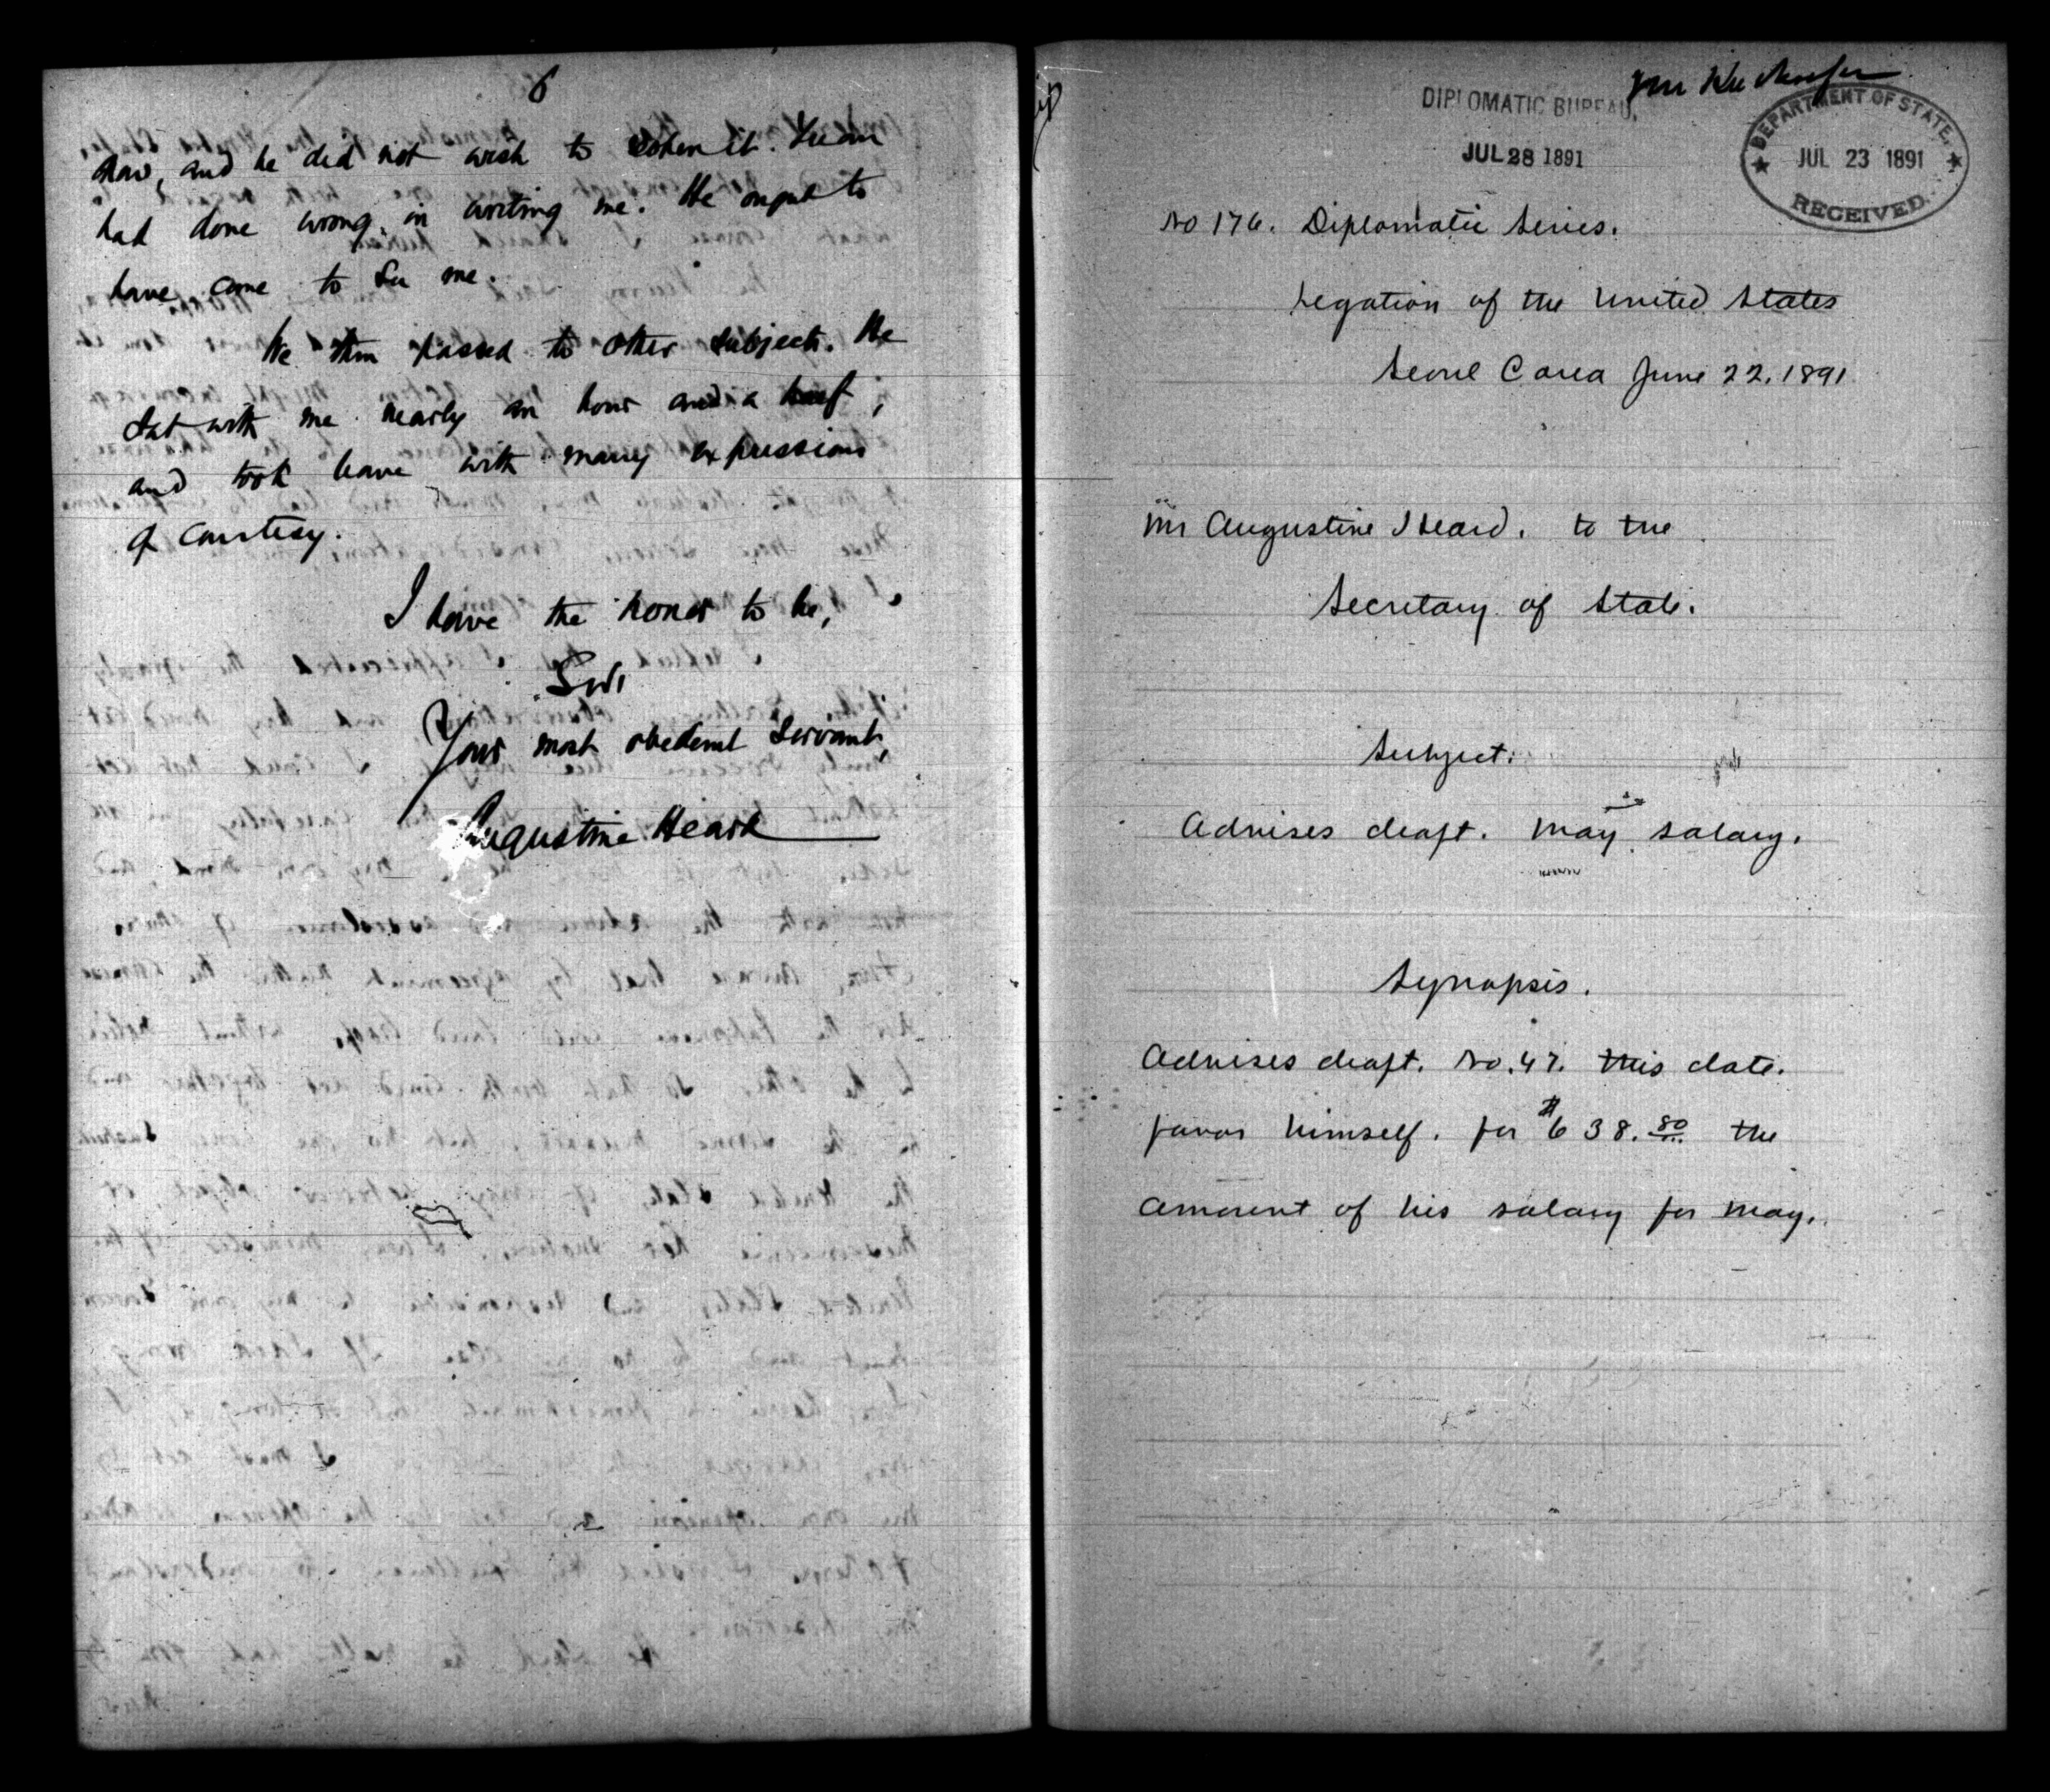 6
now, and he did not wish to reopen it. Yuan
had done wrong in writing me. He ought to
have come to see me.
We then passed to other subjects. He
sat with me nearly an hour and a half,
and took leave with many expressions
of courtesy.
I have the honor to be,
Sir,
Your most obedient servant,
Augustine Heard
DIPLOMATIC BUREAU,
JUL 28 1891
DEPARTMENT OF STATE.
JUL 23 1891
RECEIVED.
No 176. Diplomatic Series.
Legation of the United States
Seoul Corea June 22, 1891
Mr Augustine Heard. to the
Secretary of State.
Subject:
Advises draft. May salary.
Synopsis.
Advises draft. No. 47. this date.
favor himself. for $638.80 the
amount of his salary for May.